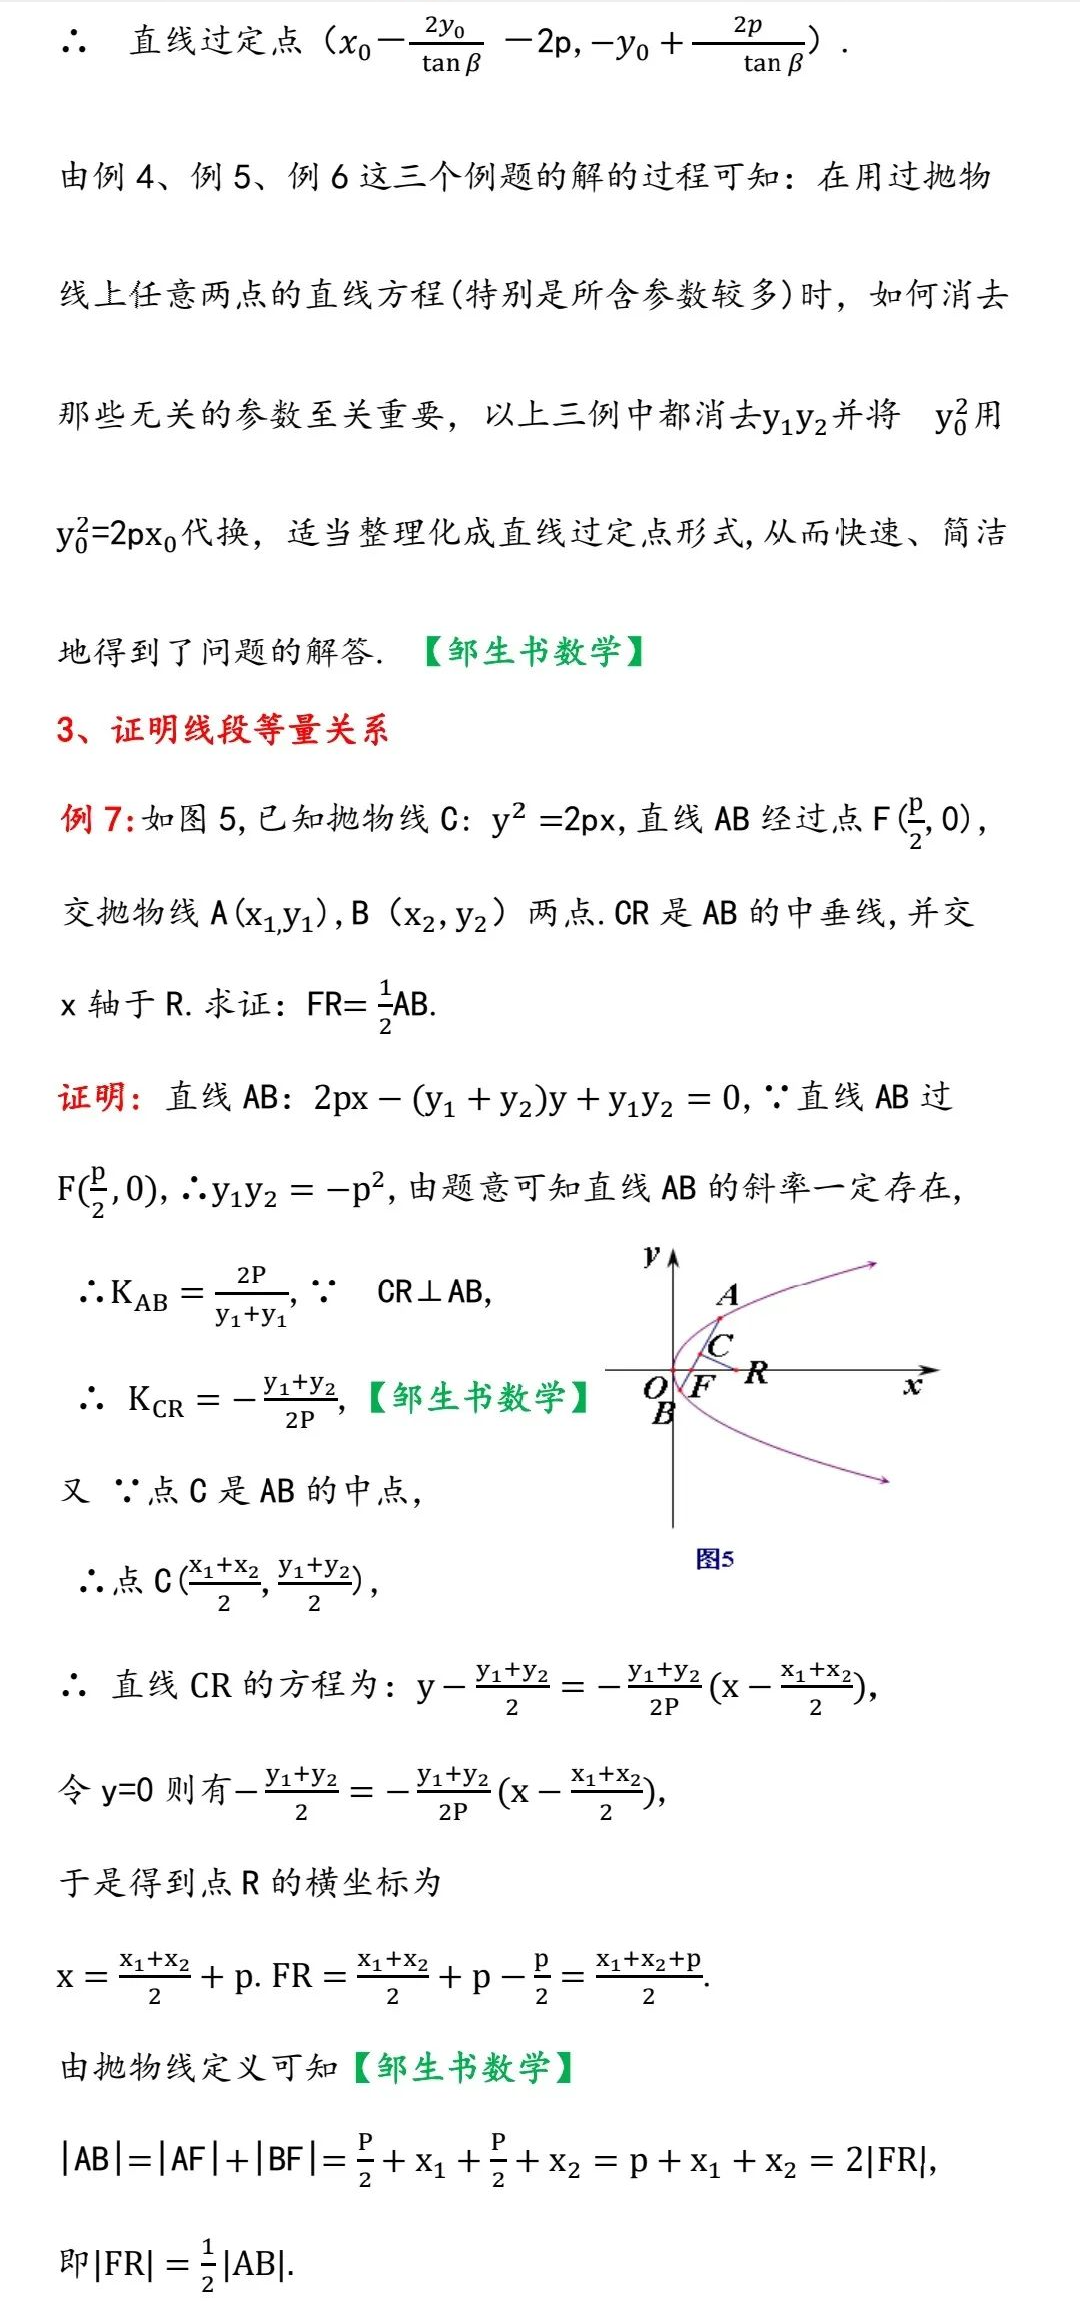 ∴ 直线过定点（x₀－2y₀/tan β －2p, －y₀＋2p/tan β）.
由例 4、例 5、例 6 这三个例题的解的过程可知：在用过抛物
线上任意两点的直线方程(特别是所含参数较多)时，如何消去
那些无关的参数至关重要，以上三例中都消去y₁y₂并将 y₀²用
y₀²=2px₀代换，适当整理化成直线过定点形式,从而快速、简洁
地得到了问题的解答. 【邹生书数学】
3、证明线段等量关系
例 7:如图 5,已知抛物线 C: y² =2px,直线 AB 经过点 F(p/2, 0),
交抛物线 A(x₁,y₁),B（x₂, y₂）两点.CR 是 AB 的中垂线,并交
x 轴于 R.求证：FR=1/2AB.
证明：直线 AB：2px − (y₁ + y₂)y + y₁y₂ = 0, ∵直线 AB 过
F(p/2, 0), ∴y₁y₂ = −p², 由题意可知直线 AB 的斜率一定存在,
∴K_AB = 2P/(y₁+y₁), ∵ CR⊥AB,
∴ K_CR = −(y₁+y₂)/2P,【邹生书数学】
又 ∵点 C 是 AB 的中点,
∴点 C((x₁+x₂)/2, (y₁+y₂)/2),
∴ 直线 CR 的方程为：y − (y₁+y₂)/2 = −(y₁+y₂)/2P (x − (x₁+x₂)/2),
令 y=0 则有−(y₁+y₂)/2 = −(y₁+y₂)/2P (x − (x₁+x₂)/2),
于是得到点 R 的横坐标为
x = (x₁+x₂)/2 + p. FR = (x₁+x₂)/2 + p − p/2 = (x₁+x₂+p)/2.
由抛物线定义可知【邹生书数学】
|AB|=|AF|+|BF|= P/2 + x₁ + P/2 + x₂ = p + x₁ + x₂ = 2|FR|,
即|FR| = 1/2|AB|.
y
A
C
O
F
R
x
B
图5